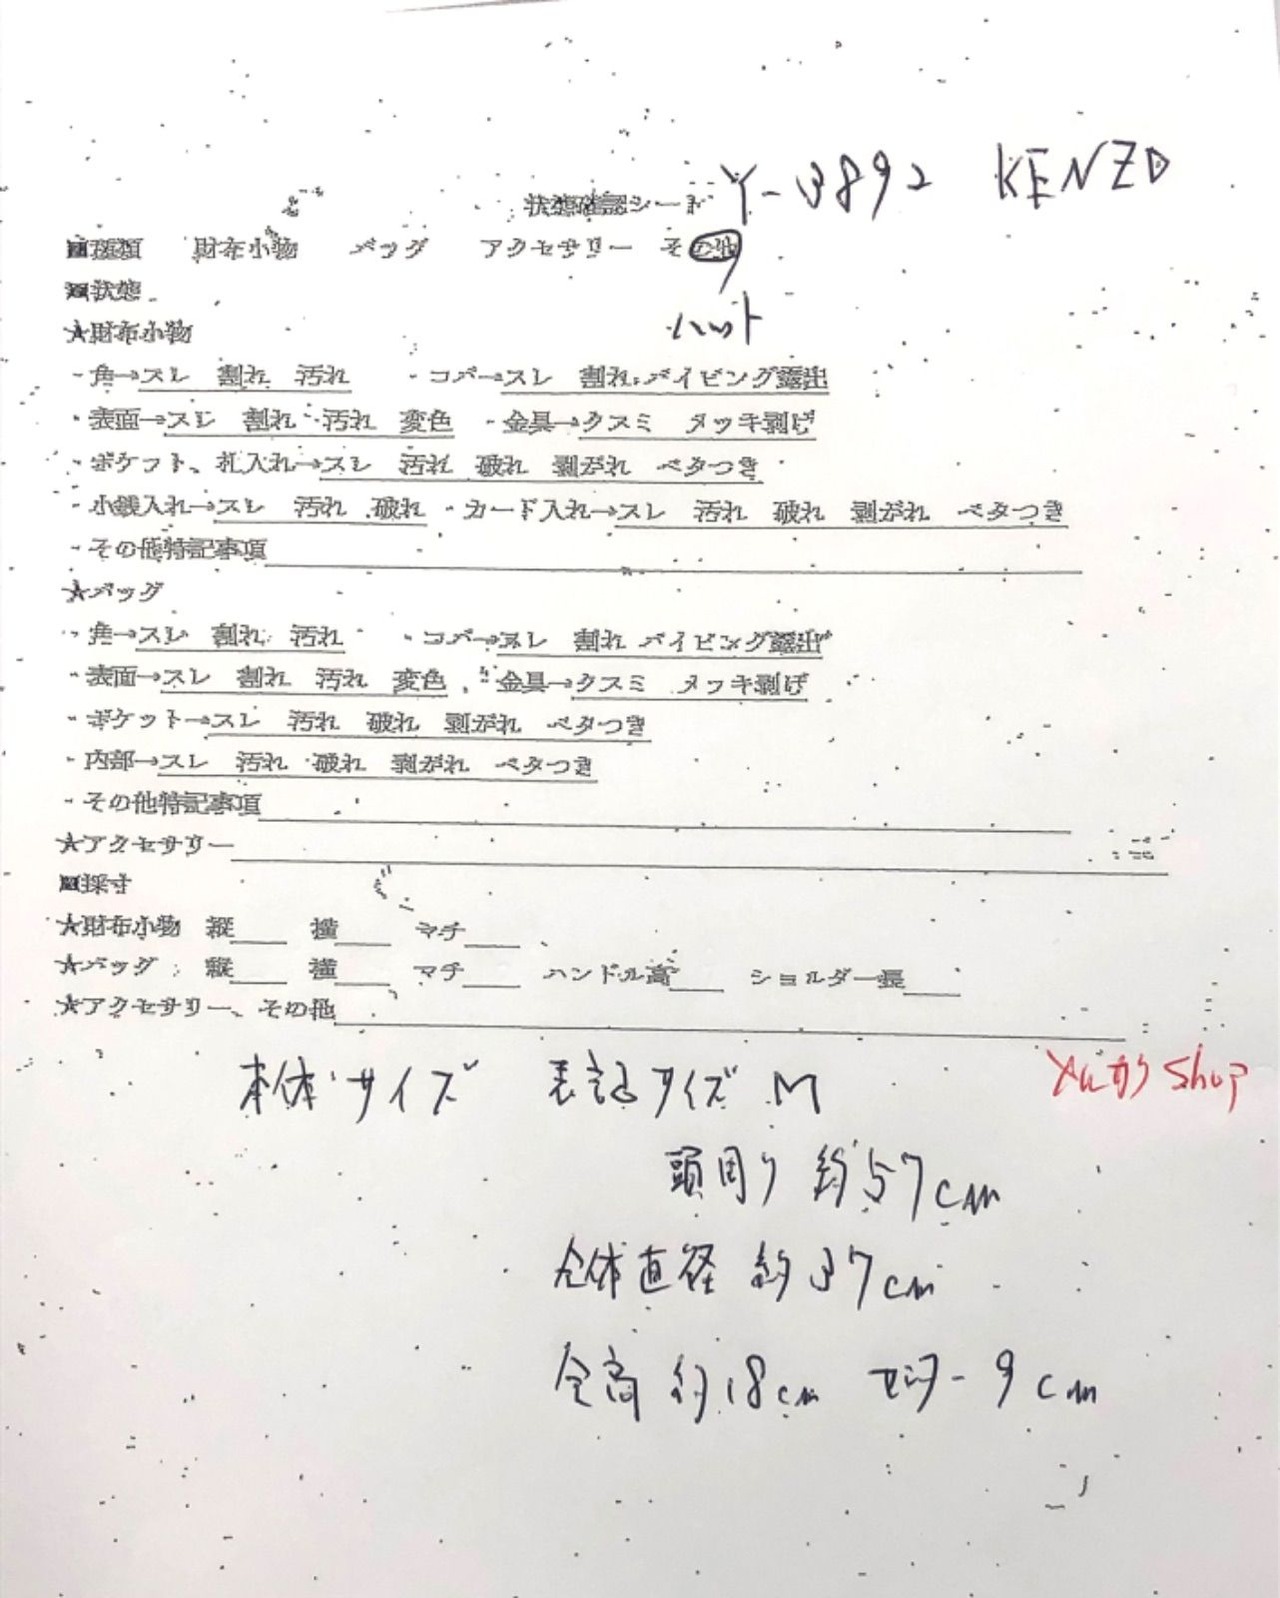 Y-3892 KENZO
状態確認シート
■種類 財布小物 バッグ アクセサリー その他
■状態
ハット
★財布小物
・角→スレ 割れ 汚れ ・コバ→スレ 割れ パイピング露出
・表面→スレ 割れ 汚れ 変色 ・金具→クスミ メッキ剥げ
・ポケット、札入れ→スレ 汚れ 破れ 剥がれ ベタつき
・小銭入れ→スレ 汚れ 破れ ・カード入れ→スレ 汚れ 破れ 剥がれ ベタつき
・その他特記事項
★バッグ
・角→スレ 割れ 汚れ ・コバ→スレ 割れ パイピング露出
・表面→スレ 割れ 汚れ 変色 ・金具→クスミ メッキ剥げ
・ポケット→スレ 汚れ 破れ 剥がれ ベタつき
・内部→スレ 汚れ 破れ 剥がれ ベタつき
・その他特記事項
★アクセサリー
■採寸
★財布小物 縦 横 マチ
★バッグ 縦 横 マチ ハンドル高 ショルダー長
★アクセサリー、その他
本体サイズ 表記サイズ M
メルカリ Shop
頭周り 約57cm
全体直径 約37cm
全高 約18cm 9cm